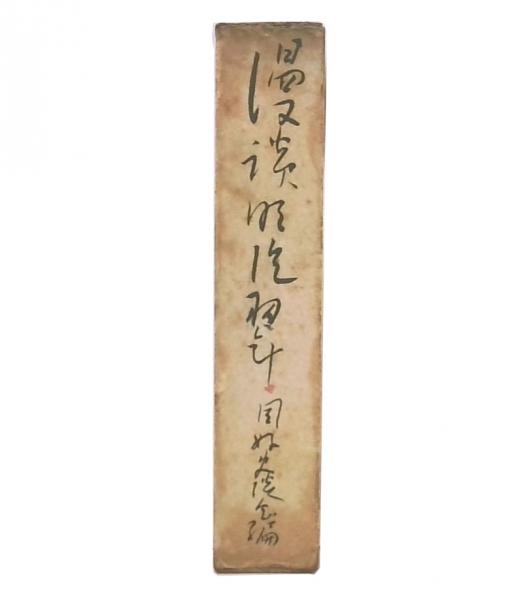 漫談明治初年
同好史談会編